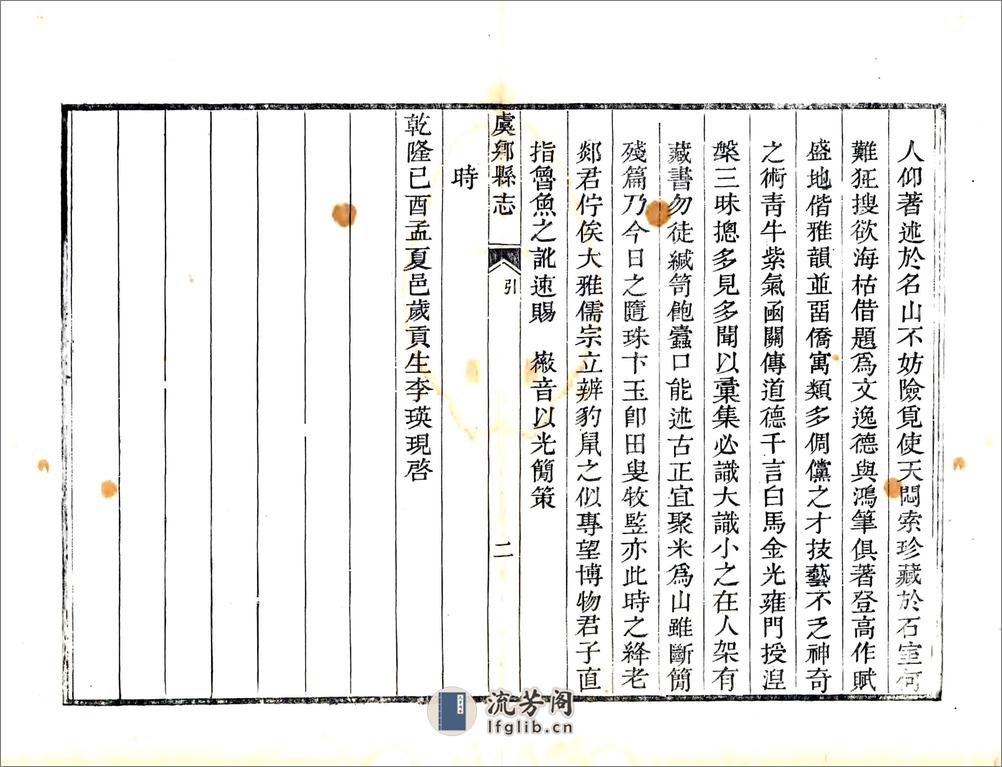 人仰著述於名山不妨險覓使天悶索珍藏於石室何
難狂搜欲海枯借題為文逸德與鴻筆俱著登高作賦
盛地偕雅韻並畱僑寓類多倜儻之才技藝不乏神奇
之術靑牛紫氣函關傳道德千言白馬金光雍門授湼
槃三昧摠多見多聞以彚集必識大識小之在人架有
藏書勿徒緘笥飽蠹口能述古正宜聚米為山雖斷簡
殘篇乃今日之隨珠卞玉卽田叟牧監亦此時之絳老
郯君佇俟大雅儒宗立辨豹鼠之似專望博物君子直
指魯魚之訛速賜 徽音以光簡策
虞鄉縣志 引 二
時
乾隆己酉孟夏邑歲貢生李瑛現啓
流芳阁
lfglib.cn